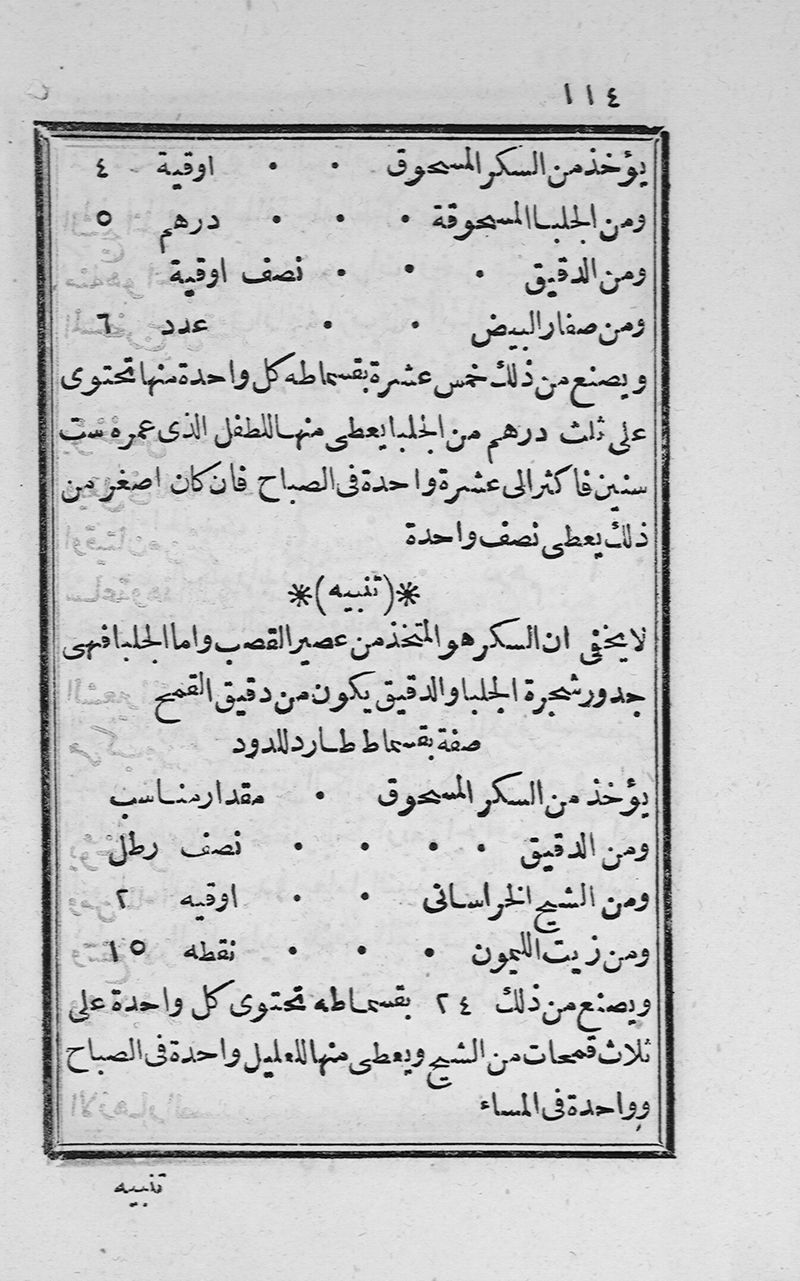 ١١٤
يؤخذ من السكر المسحوق • • اوقية ٤
ومن الجلبا المسحوقة • • • درهم ٥
ومن الدقيق • • • نصف اوقية
ومن صفار البيض • • عدد ٦
ويصنع من ذلك خمس عشرة بقسماطه كل واحدة منها تحتوى
على ثلث درهم من الجلبا يعطى منها للطفل الذى عمره ست
سنين فاكثر الى عشرة واحدة فى الصباح فان كان اصغر من
ذلك يعطى نصف واحدة
*(تنبيه)*
لا يخفى ان السكر هو المتخذ من عصير القصب واما الجلبا فهى
جدور شجرة الجلبا والدقيق يكون من دقيق القمح
صفة بقسماط طارد للدود
يؤخذ من السكر المسحوق • مقدار مناسب
ومن الدقيق • • • • نصف رطل
ومن الشيح الخراسانى • • اوقيه ٢
ومن زيت الليمون • • • نقطه ١٥
ويصنع من ذلك ٢٤ بقسماطه تحتوى كل واحدة على
ثلاث قمحات من الشيح ويعطى منها للعليل واحدة فى الصباح
وواحدة فى المساء
تنبيه